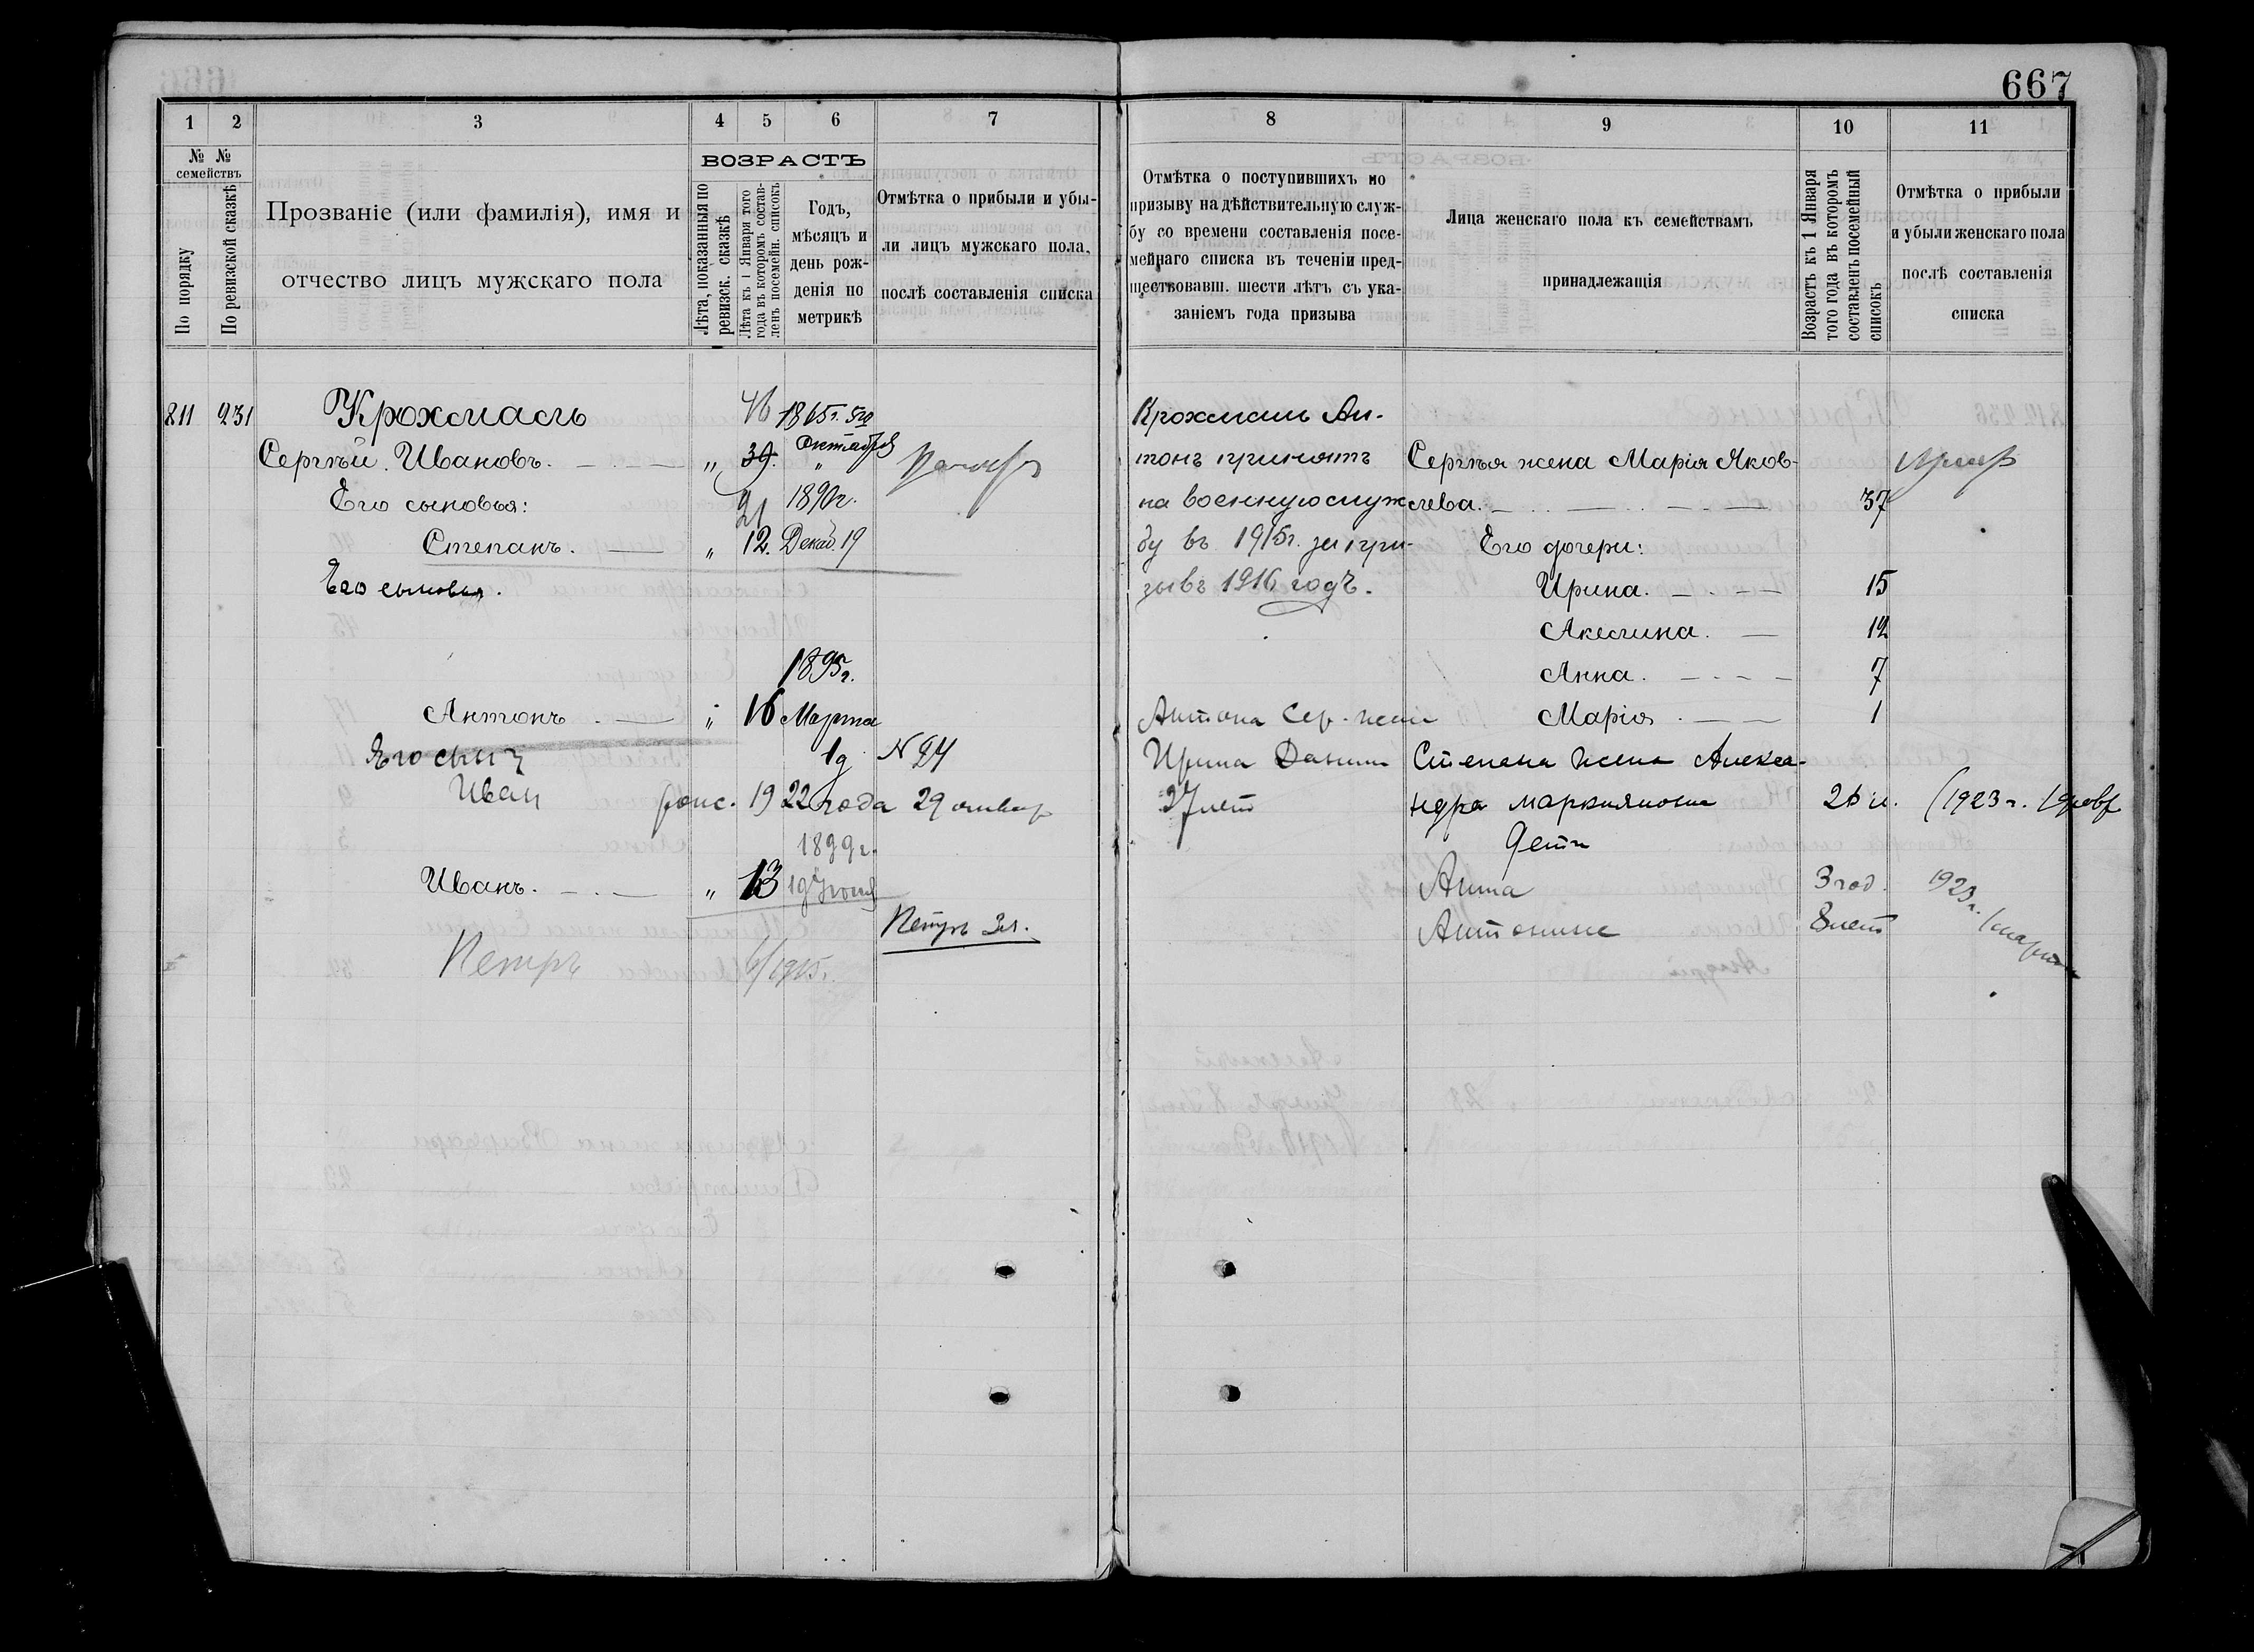 667
1 2 3 4 5 6 7
№ № семействъ
По порядку
По ревизской сказкѣ
Прозваніе (или фамилія), имя и
отчество лицъ мужскаго пола
ВОЗРАСТЪ
Лѣта, показанныя по
ревизск. сказкѣ
Лѣта къ 1 Января того
года въ которомъ состав-
ленъ посемейн. списокъ
Годъ,
мѣсяцъ и
день рож-
денія по
метрикѣ
Отмѣтка о прибыли и убы-
ли лицъ мужскаго пола,
послѣ составленія списка
811 931 Крохмаль 46 1865г.
Сергѣй Ивановъ. „ 39. Октября
Его сыновья: 21 1890г.
Степанъ. „ 12. Декаб. 19
Его сыновья.
1895г.
Антонъ „ 16 Марта
Его сынъ 1д N 24
Иван 1922 года 29
1899г.
Иванъ. „ 13 19
Петръ 3л.
Петръ 6/1915г.
8 9 10 11
Отмѣтка о поступившихъ по
призыву на дѣйствительную служ-
бу со времени составленія посе-
мейнаго списка въ теченіи пред-
шествовавш. шести лѣтъ съ ука-
заніемъ года призыва
Лица женскаго пола къ семействамъ
принадлежащія
Возрастъ къ 1 Января
того года въ которомъ
составленъ посемейный
списокъ
Отмѣтка о прибыли
и убыли женскаго пола
послѣ составленія
списка
Крохмаль Ан-
тонъ принятъ
на военную служ-
бу въ 1915г. за при-
зывъ 1916 годъ.
Антона Сер. жена
Ирина Данил
27 лет
Сергѣя жена Марія Яков-
лева. 37
Его дочери:
Ирина. 15
Акелина. 12
Анна. 7
Марія 1
Степана жена Алекса-
ндра 26 л. (1923 г.
дети
Анна 3 год. 1923 г.
Антонина 8 лет